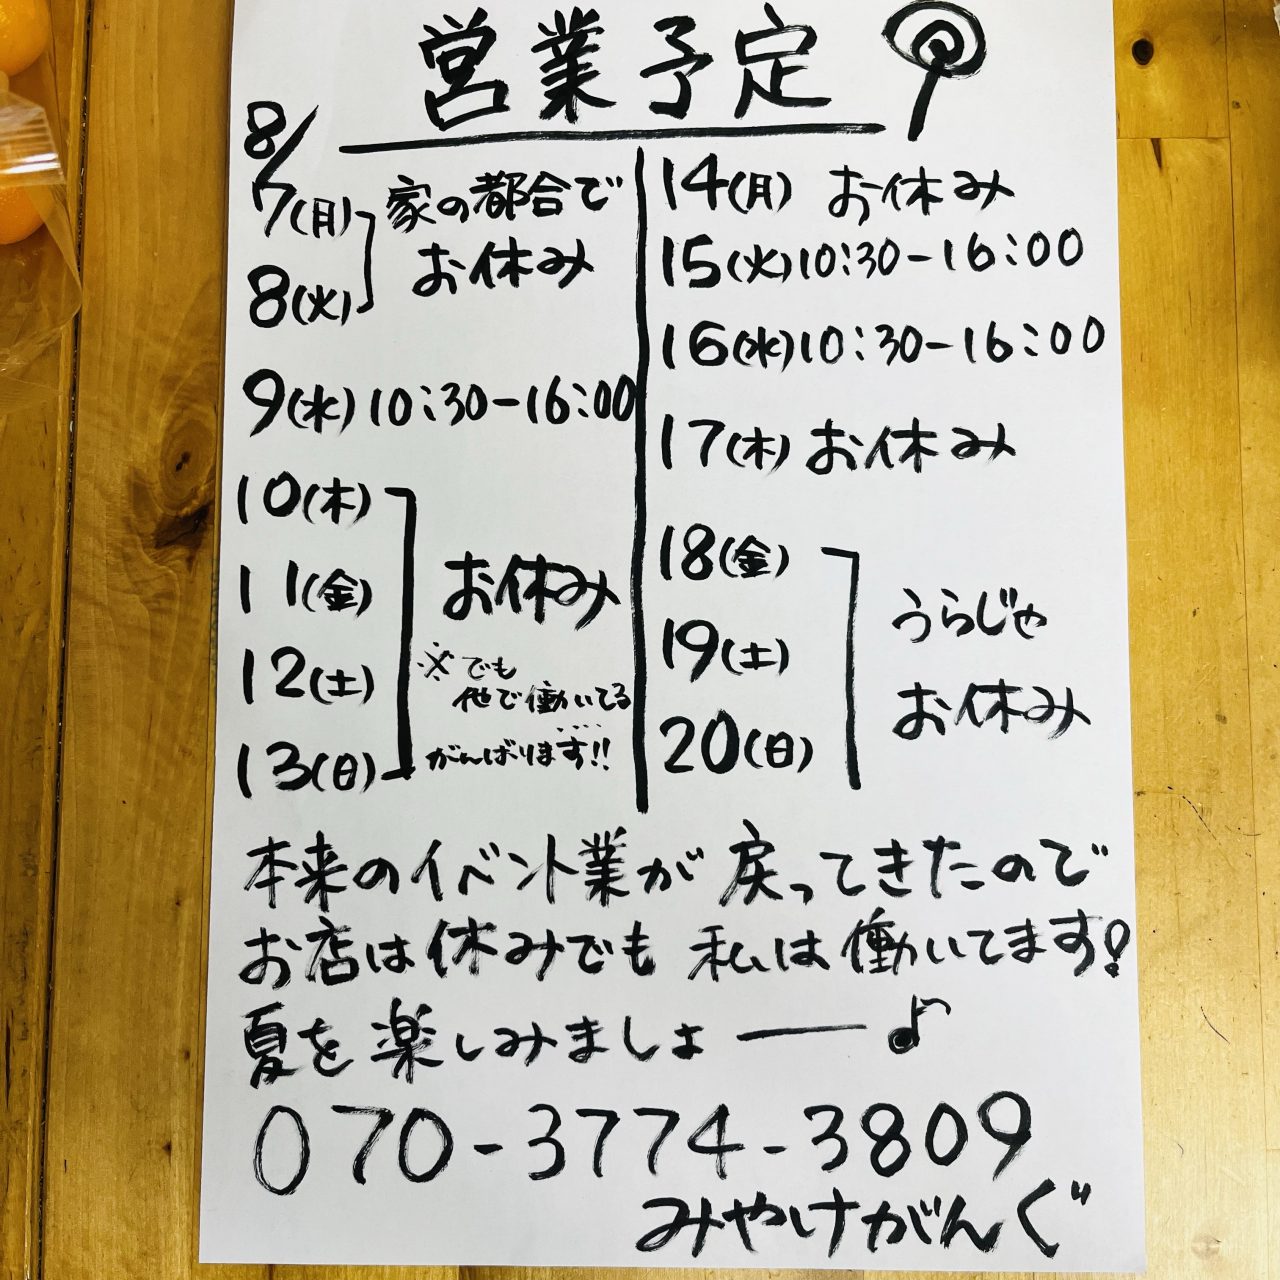 営業予定
8/
7(月) 家の都合で
8(火) お休み
9(水) 10:30-16:00
10(木)
11(金) お休み
12(土) ※でも
他で働いてる
13(日) がんばります!!
14(月) お休み
15(火) 10:30-16:00
16(水) 10:30-16:00
17(木) お休み
18(金)
19(土) うらじゃ
20(日) お休み
本来のイベント業が戻ってきたので
お店は休みでも 私は働いてます!
夏を楽しみましょー♪
070-3774-3809
みやけがんぐ